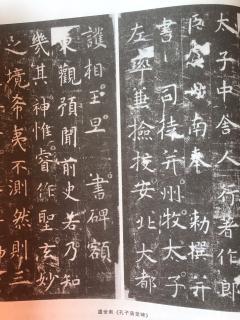 太子中舍人行著作郎
臣虞世南奉 勅撰并
書 司徒并州牧太子
左率兼檢校安北大都
護相王旦 書碑額
東觀預聞前史若乃知
幾其神惟睿作聖玄妙
之境希夷不測然則三
虞世南《孔子庙堂碑》